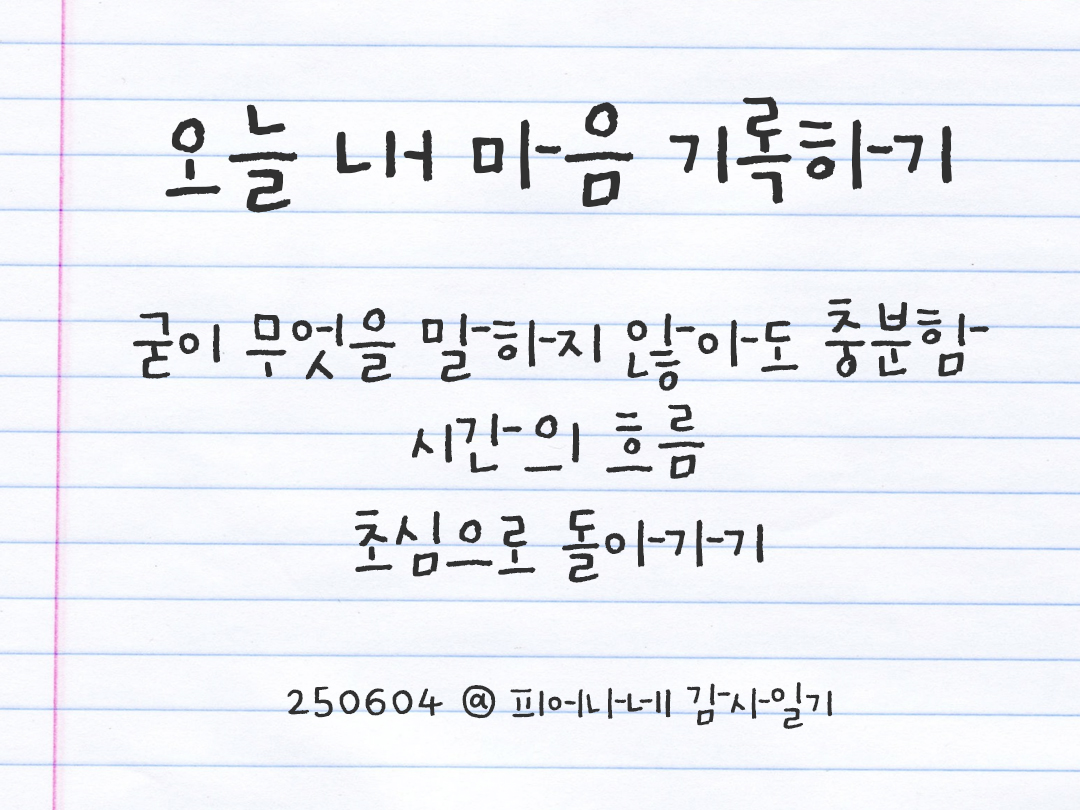 오늘 내 마음 기록하기
굳이 무엇을 말하지 않아도 충분함
시간의 흐름
초심으로 돌아가기
250604 @ 피어나네 감사일기